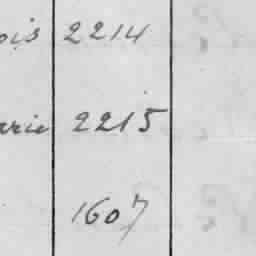 ois 2214
arie 2215
1607